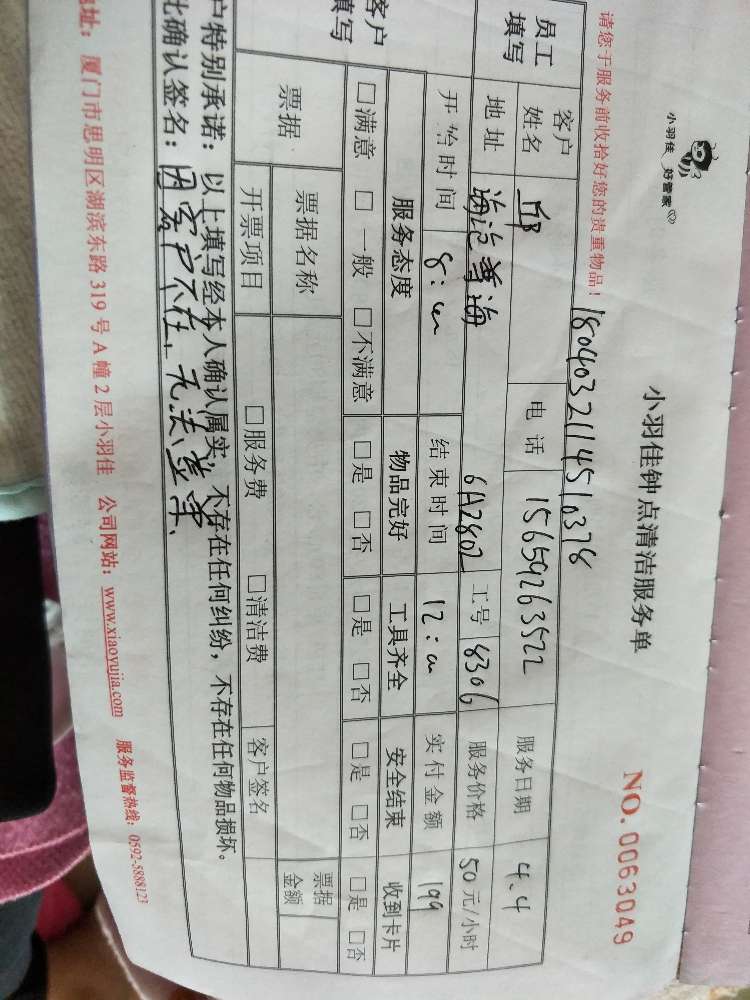 小羽佳 好管家
小羽佳钟点清洁服务单
NO. 0063049
请您于服务前收拾好您的贵重物品!
1804032114510378
员工填写
客户姓名 邱 电话 15659263522 服务日期 4.4
地址 海沧尊海 6A2802 工号 8306 服务价格 50元/小时
开始时间 8:00 结束时间 12:00 实付金额 199
客户填写
服务态度 物品完好 工具齐全 安全结束 收到卡片
□满意 □一般 □不满意 □是 □否 □是 □否 □是 □否 □是 □否
票据 票据名称 票据金额
开票项目 □服务费 □清洁费 客户签名
户特别承诺:以上填写经本人确认属实,不存在任何纠纷,不存在任何物品损坏。
比确认签名:因客户不在、无法签单、
址:厦门市思明区湖滨东路 319 号 A 幢 2 层小羽佳 公司网站:www.xiaoyujia.com 服务监督热线:0592-5888123